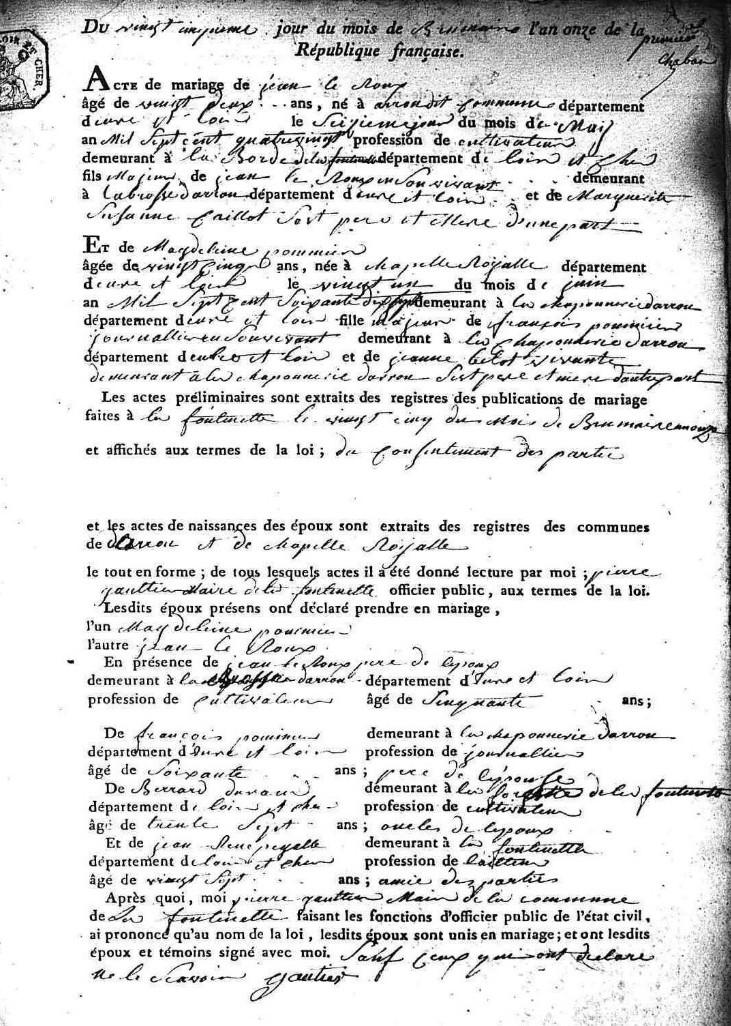 Du vingt cinquieme jour du mois de Brumaire l'an onze de la
République française.
premier
LOIR ET CHER.
ACTE de mariage de jean le Roux
âgé de vingt deux ans, né à arrou dit commune département
d'eure et loir le Seizieme jour du mois de May
an Mil Sept Cent quatrevingt profession de cultivateur
demeurant à la Borde de la fontenelle département de loir et cher
fils Majeur de jean le Roux en Son vivant demeurant
à labrosse darrou département d'eure et loir et de Marguerite
Susanne Caillot Sest pere et Mere d'une part
ET de Magdeleine pommier
âgée de vingt cinq ans, née à chapelle Royalle département
d'eure et loir le vingt un du mois de juin
an Mil Sept Cent Soixante dix Sept demeurant à la chaponnerie darrou
département d'eure et loir fille majeur de françois pommier
journallier en Son vivant demeurant à la chaponnerie darrou
département d'eure et loir et de jeanne belot vivante
demeurant à la chaponnerie darrou Sest pere et mere dautre part
Les actes préliminaires sont extraits des registres des publications de mariage
faites à la fontenelle le vingt cinq du Mois de Brumaire an onze
et affichés aux termes de la loi ; du Consentement des partie
et les actes de naissances des époux sont extraits des registres des communes
de darrou et de chapelle Royalle
le tout en forme ; de tous lesquels actes il a été donné lecture par moi ; pierre
gaultier Maire de la fontenelle officier public, aux termes de la loi.
Lesdits époux présens ont déclaré prendre en mariage,
l'un Magdeleine pommier
l'autre jean le Roux
En présence de jean le Roux pere de lepoux
demeurant à la darrou département d'Eure et loir
profession de Cultivateur âgé de Sinquante ans ;
De françois pommier demeurant à la chaponnerie darrou
département d'Eure et loir profession de journallier
âgé de Soixante ans ; pere de lepouse
De Berrard demeurant à la de la fontenelle
département de loir et cher profession de cultivateur
âgé de trente Sept ans ; oncles de lepoux
Et de jean demeurant à la fontenelle
département de loir et cher profession de
âgé de vingt Sept ans ; amie des parties
Après quoi, moi pierre gaultier Maire de la commune
de la fontenelle faisant les fonctions d'officier public de l'état civil,
ai prononcé qu'au nom de la loi, lesdits époux sont unis en mariage; et ont lesdits
époux et témoins signé avec moi. Sauf Ceux qui ont declare
ne le Scavoir Gautier